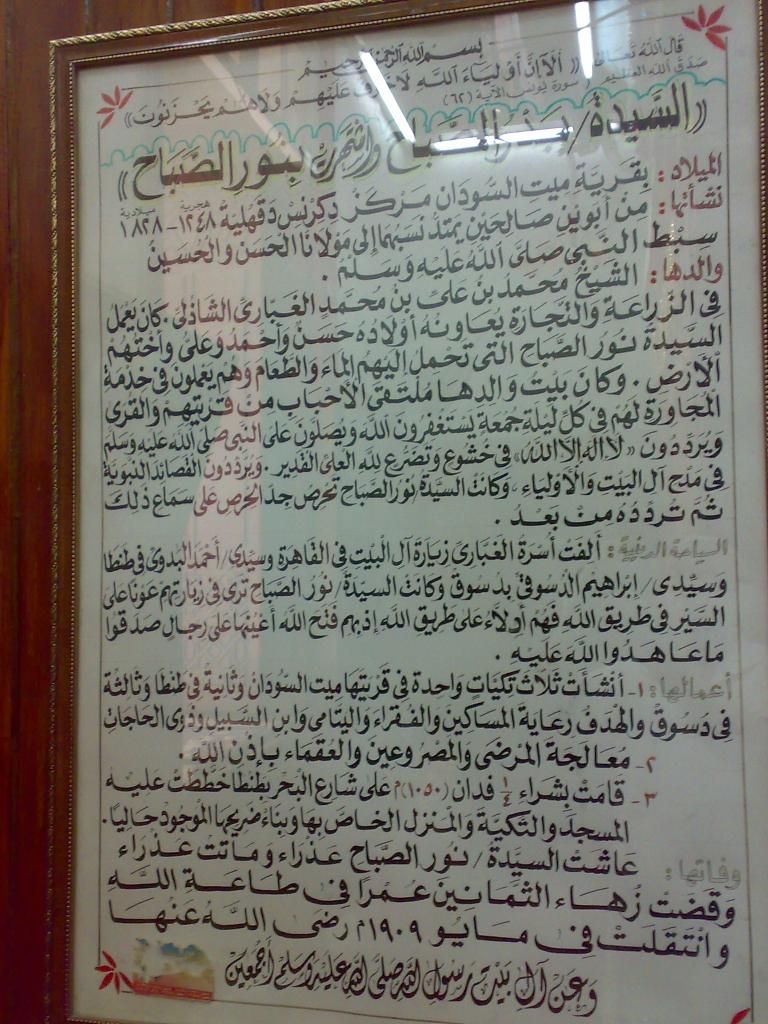 بسم الله الرحمن الرحيم
قال الله تعالى « ألا إن أولياء الله لا خوف عليهم ولا هم يحزنون »
صدق الله العظيم (سورة يونس الآية (٦٢
«السيدة/ الصباح واشتهرت بنور الصباح»
الميلاد: بقرية ميت السودان مركز دكرنس دقهلية ١٢٤٨ هجرية - ١٨٢٨ ميلادية
نشأتها: من أبوين صالحين يمتد نسبهما إلى مولانا الحسن والحسين
سبط النبي صلى الله عليه وسلم .
والدها: الشيخ محمد بن على بن محمد الغبارى الشاذلى . كان يعمل
في الزراعة والتجارة يعاونه أولاده حسن وأحمد وعلى وأختهم
السيدة نور الصباح التى تحمل إليهم الماء والطعام وهم يعملون في خدمة
الأرض . وكان بيت والدها ملتقى الأحباب من قريتهم والقرى
المجاورة لهم في كل ليلة جمعة يستغفرون الله ويصلون على النبى صلى الله عليه وسلم
ويرددون «لا إله إلا الله» في خشوع وتضرع لله العلى القدير . ويرددون القصائد النبوية
في مدح آل البيت والأولياء ، وكانت السيدة/ نور الصباح تحرص جد الحرص على سماع ذلك
ثم تردده من بعد .
السياحة الدينية: ألفت أسرة الغبارى زيارة آل البيت في القاهرة وسيدى/ أحمد البدوى في طنطا
وسيدى/ إبراهيم الدسوقى بدسوق وكانت السيدة/ نور الصباح ترى في زيارتهم عونا على
السير في طريق الله فهم أدلاء على طريق الله إذ بهم فتح الله أعينها على رجال صدقوا
ما عاهدوا الله عليه .
أعمالها: ١- أنشأت ثلاث تكيات واحدة في قريتها ميت السودان وثانية في طنطا وثالثة
في دسوق والهدف رعاية المساكين والفقراء واليتامى وابن السبيل وذوى الحاجات
٢- معالجة المرضى والمصروعين والعقماء بإذن الله .
٣- قامت بشراء ¼ فدان (١٠٥٠)م على شارع البحر بطنطا خططت عليه
المسجد والتكية والمنزل الخاص بها وبناء ضريحها الموجود حاليا .
وفاتها: عاشت السيدة/ نور الصباح عذراء وماتت عذراء
وقضت زهاء الثمانين عمرا في طاعة الله
وانتقلت في مايو ١٩٠٩م رضى الله عنها
وعن آل بيت رسول الله صلى الله عليه وسلم أجمعين